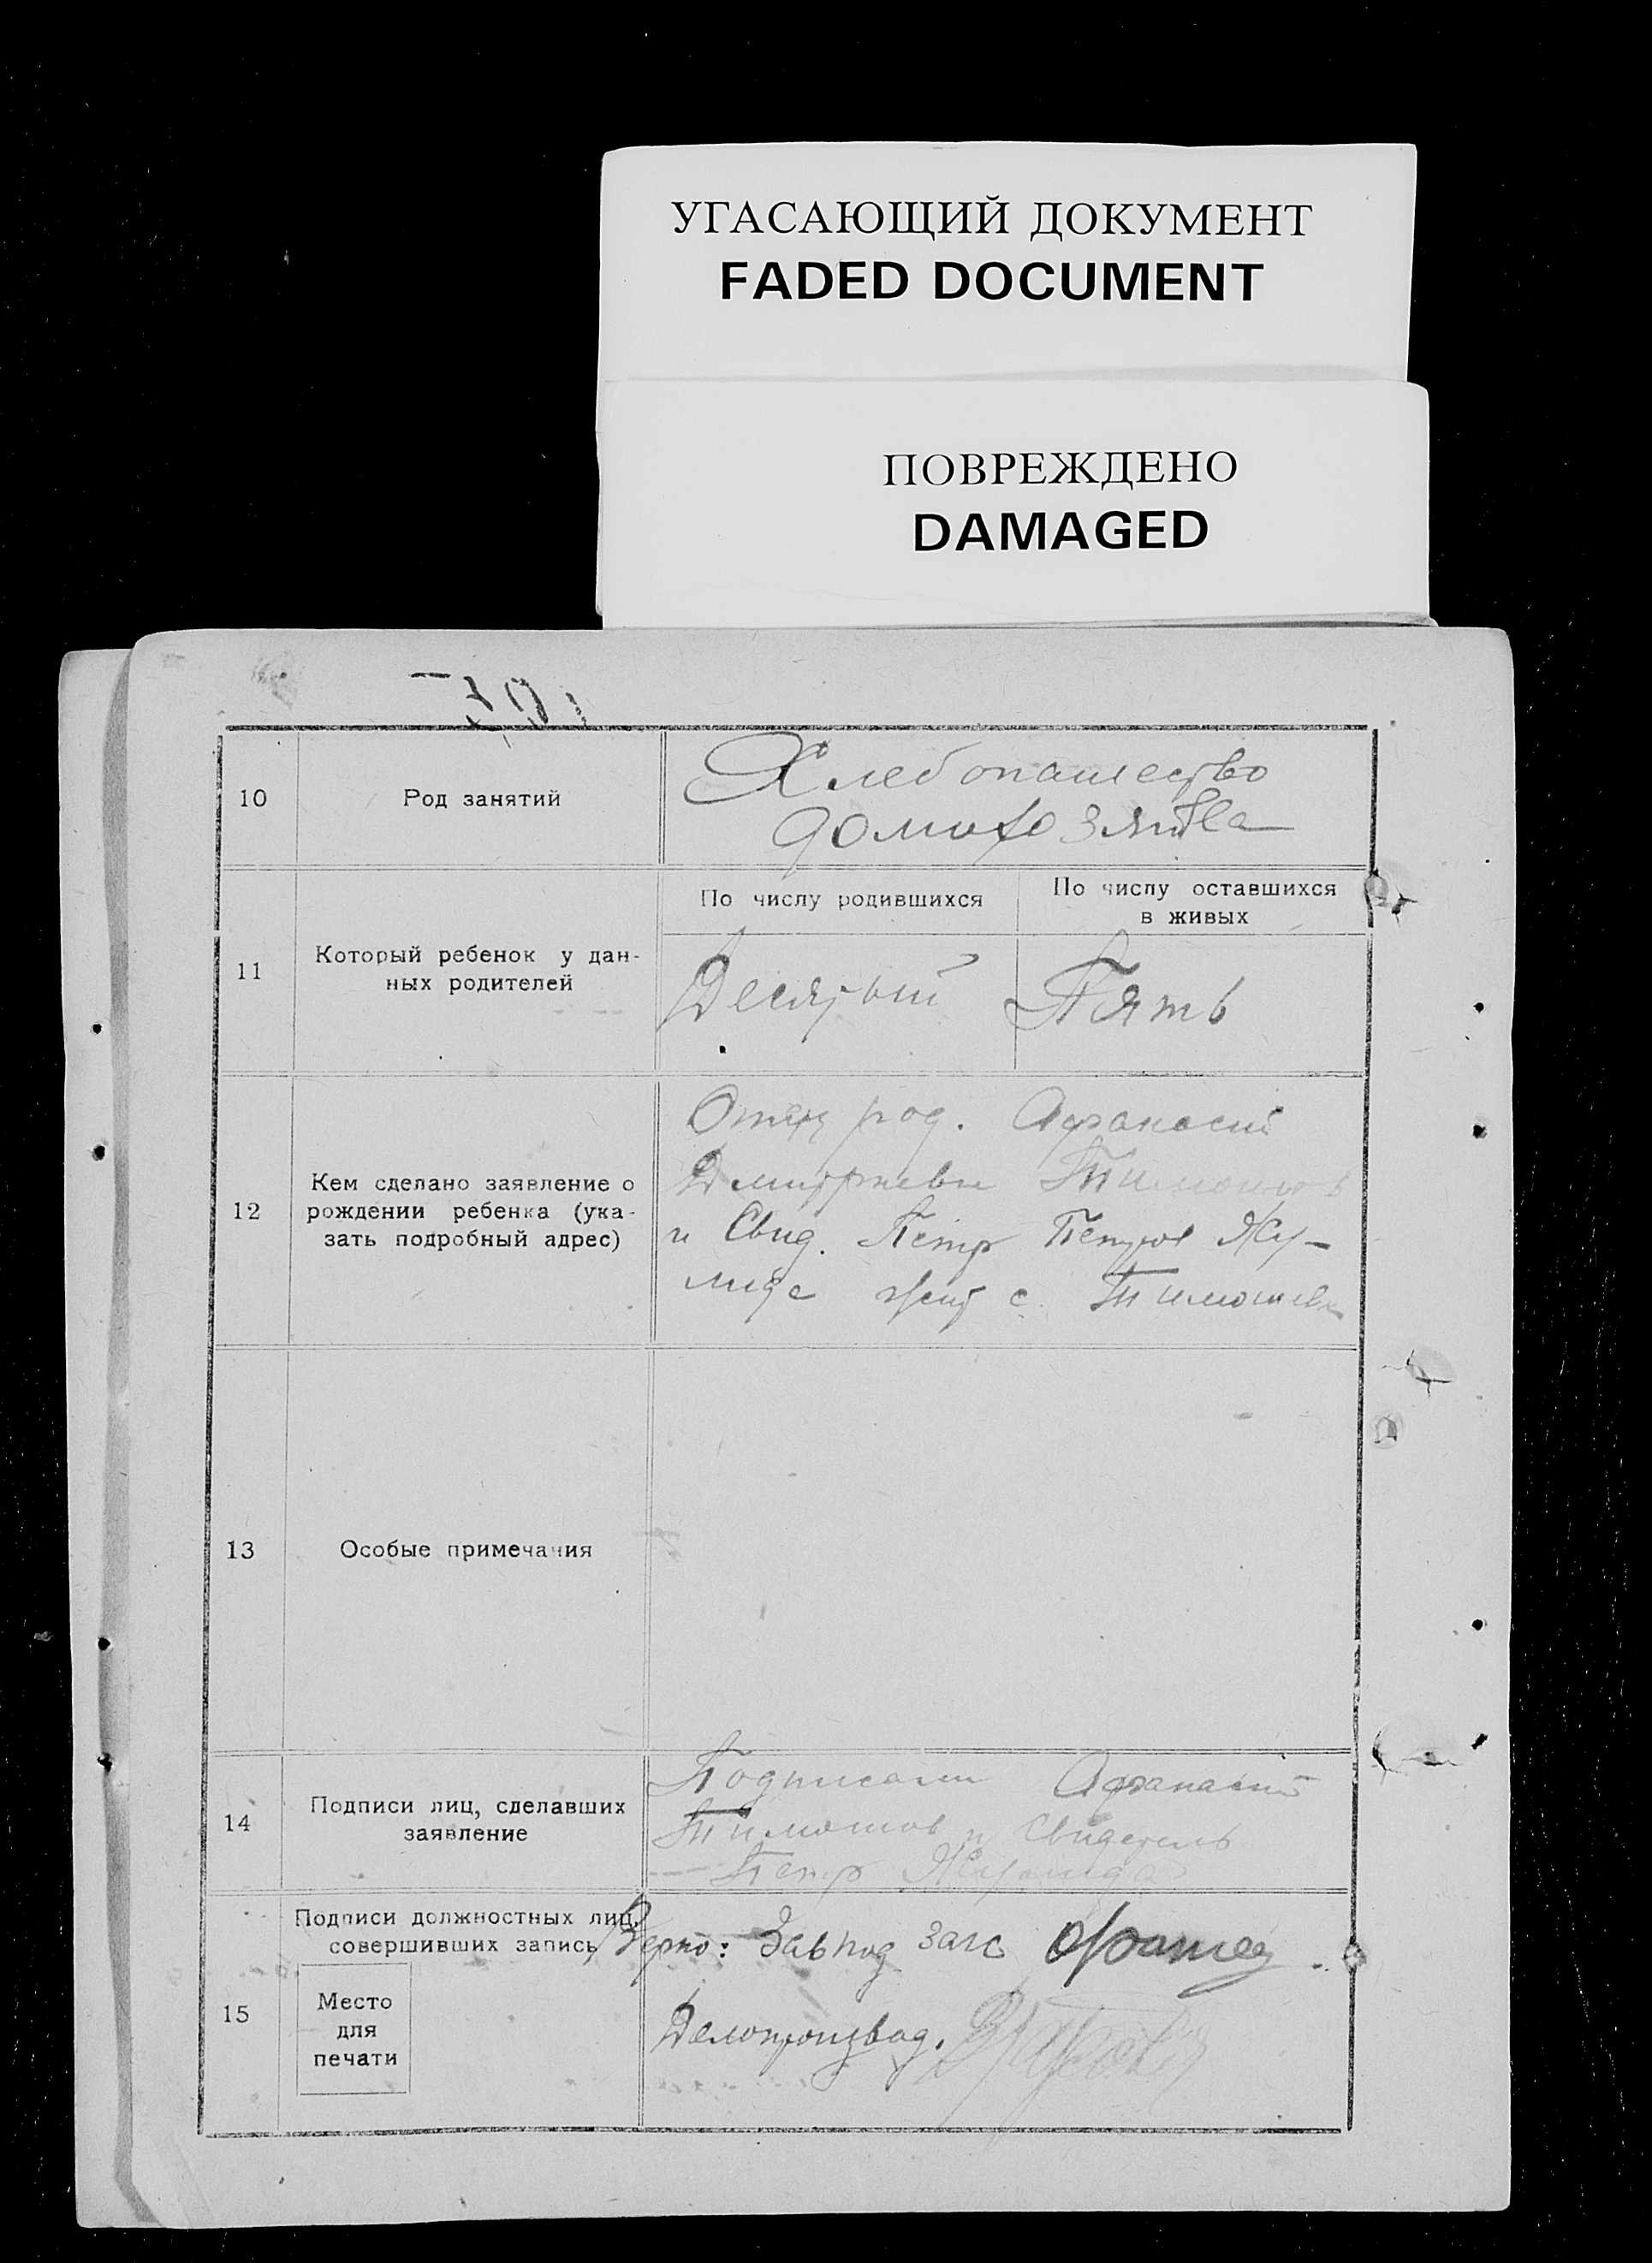 УГАСАЮЩИЙ ДОКУМЕНТ
FADED DOCUMENT
ПОВРЕЖДЕНО
DAMAGED
10
Род занятий
Хлебопашество
домихозяйка
11
Который ребенок у дан-
ных родителей
По числу родившихся
Десятый
По числу оставшихся
в живых
Пять
12
Кем сделано заявление о
рождении ребенка (ука-
зать подробный адрес)
Отец род. Афанасий
Дмитриевич Тимошов
и Свид. Петр Петров Жу-
мида жит с.
13
Особые примечания
14
Подписи лиц, сделавших
заявление
Подписали Афанасий
Тимошов и Свидетель
Петр Жумида
15
Подписи должностных лиц,
совершивших запись
Место
для
печати
Верно: Завпод загс
Делопроизвод.